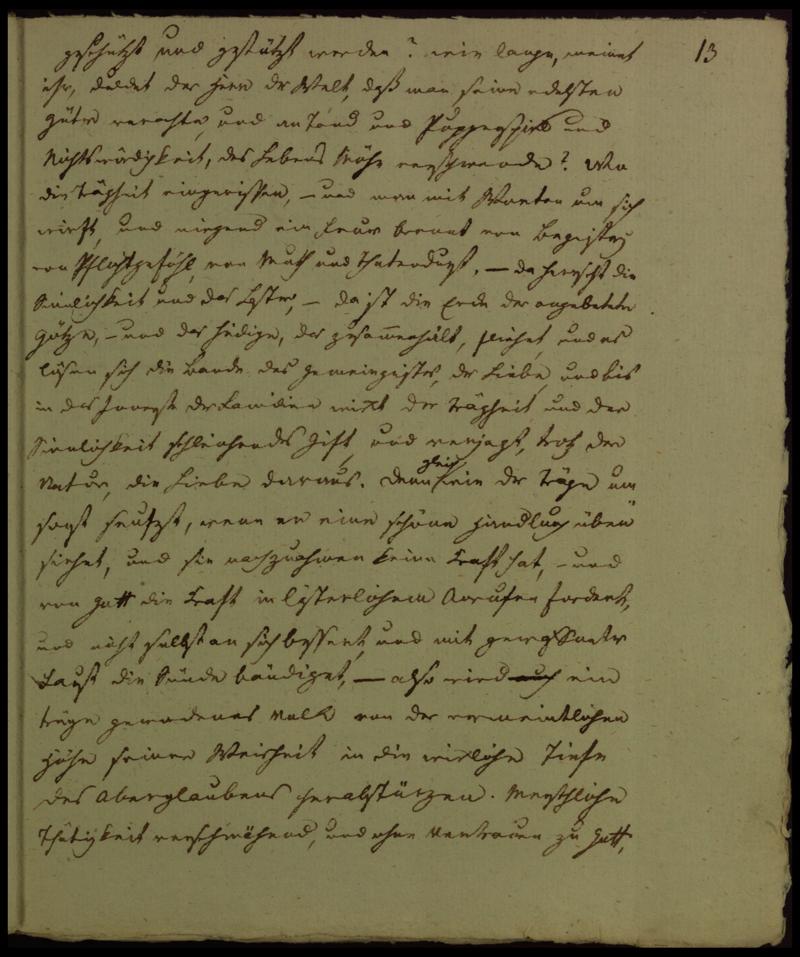 13
geschützt und gestützt werden? wie lange, meinet
ihr, duldet der Herr der Welt, daß man seine edelsten
Güter verachte, und an Tand und Puppenspiel und
Nichtswürdigkeit, des Lebens Mühe verschwende? Wo
die Trägheit eingerissen, – und man mit Worten um sich
wirft, und nirgend ein Feuer brennt von
von Pflichtgefühl, von Muth und Thatendurst, – da herrscht die
Sinnlichkeit und das Laster, – da ist die Erde der angebetete
Götze, – und das Heilige, das zusammenhält, fliehet, und es
lösen sich die Bande des Gemeingeistes, der Liebe, und bis
in das Innerste der Familien wirkt der Trägheit und der
Sinnlichkeit schleichendes Gift, und verjagt, trotz der
Natur, die Liebe daraus. Denn gleich wie der Träge um
sonst seufzt, wenn er eine schöne Handlung üben
siehet, und sie nachzuahmen keine Kraft hat, – und
von Gott die Kraft in lästerlichem Anrufen fordert,
und nicht selbst an sich bessert, und mit
Faust die Sünde bändiget, – also wird auch ein
träge gewordenes Volk von der vermeintlichen
Höhe seiner Weisheit in die wirkliche Tiefe
des Aberglaubens herabstürzen. Menschliche
Thätigkeit verschmähend, und ohne Vertrauen zu Gott,